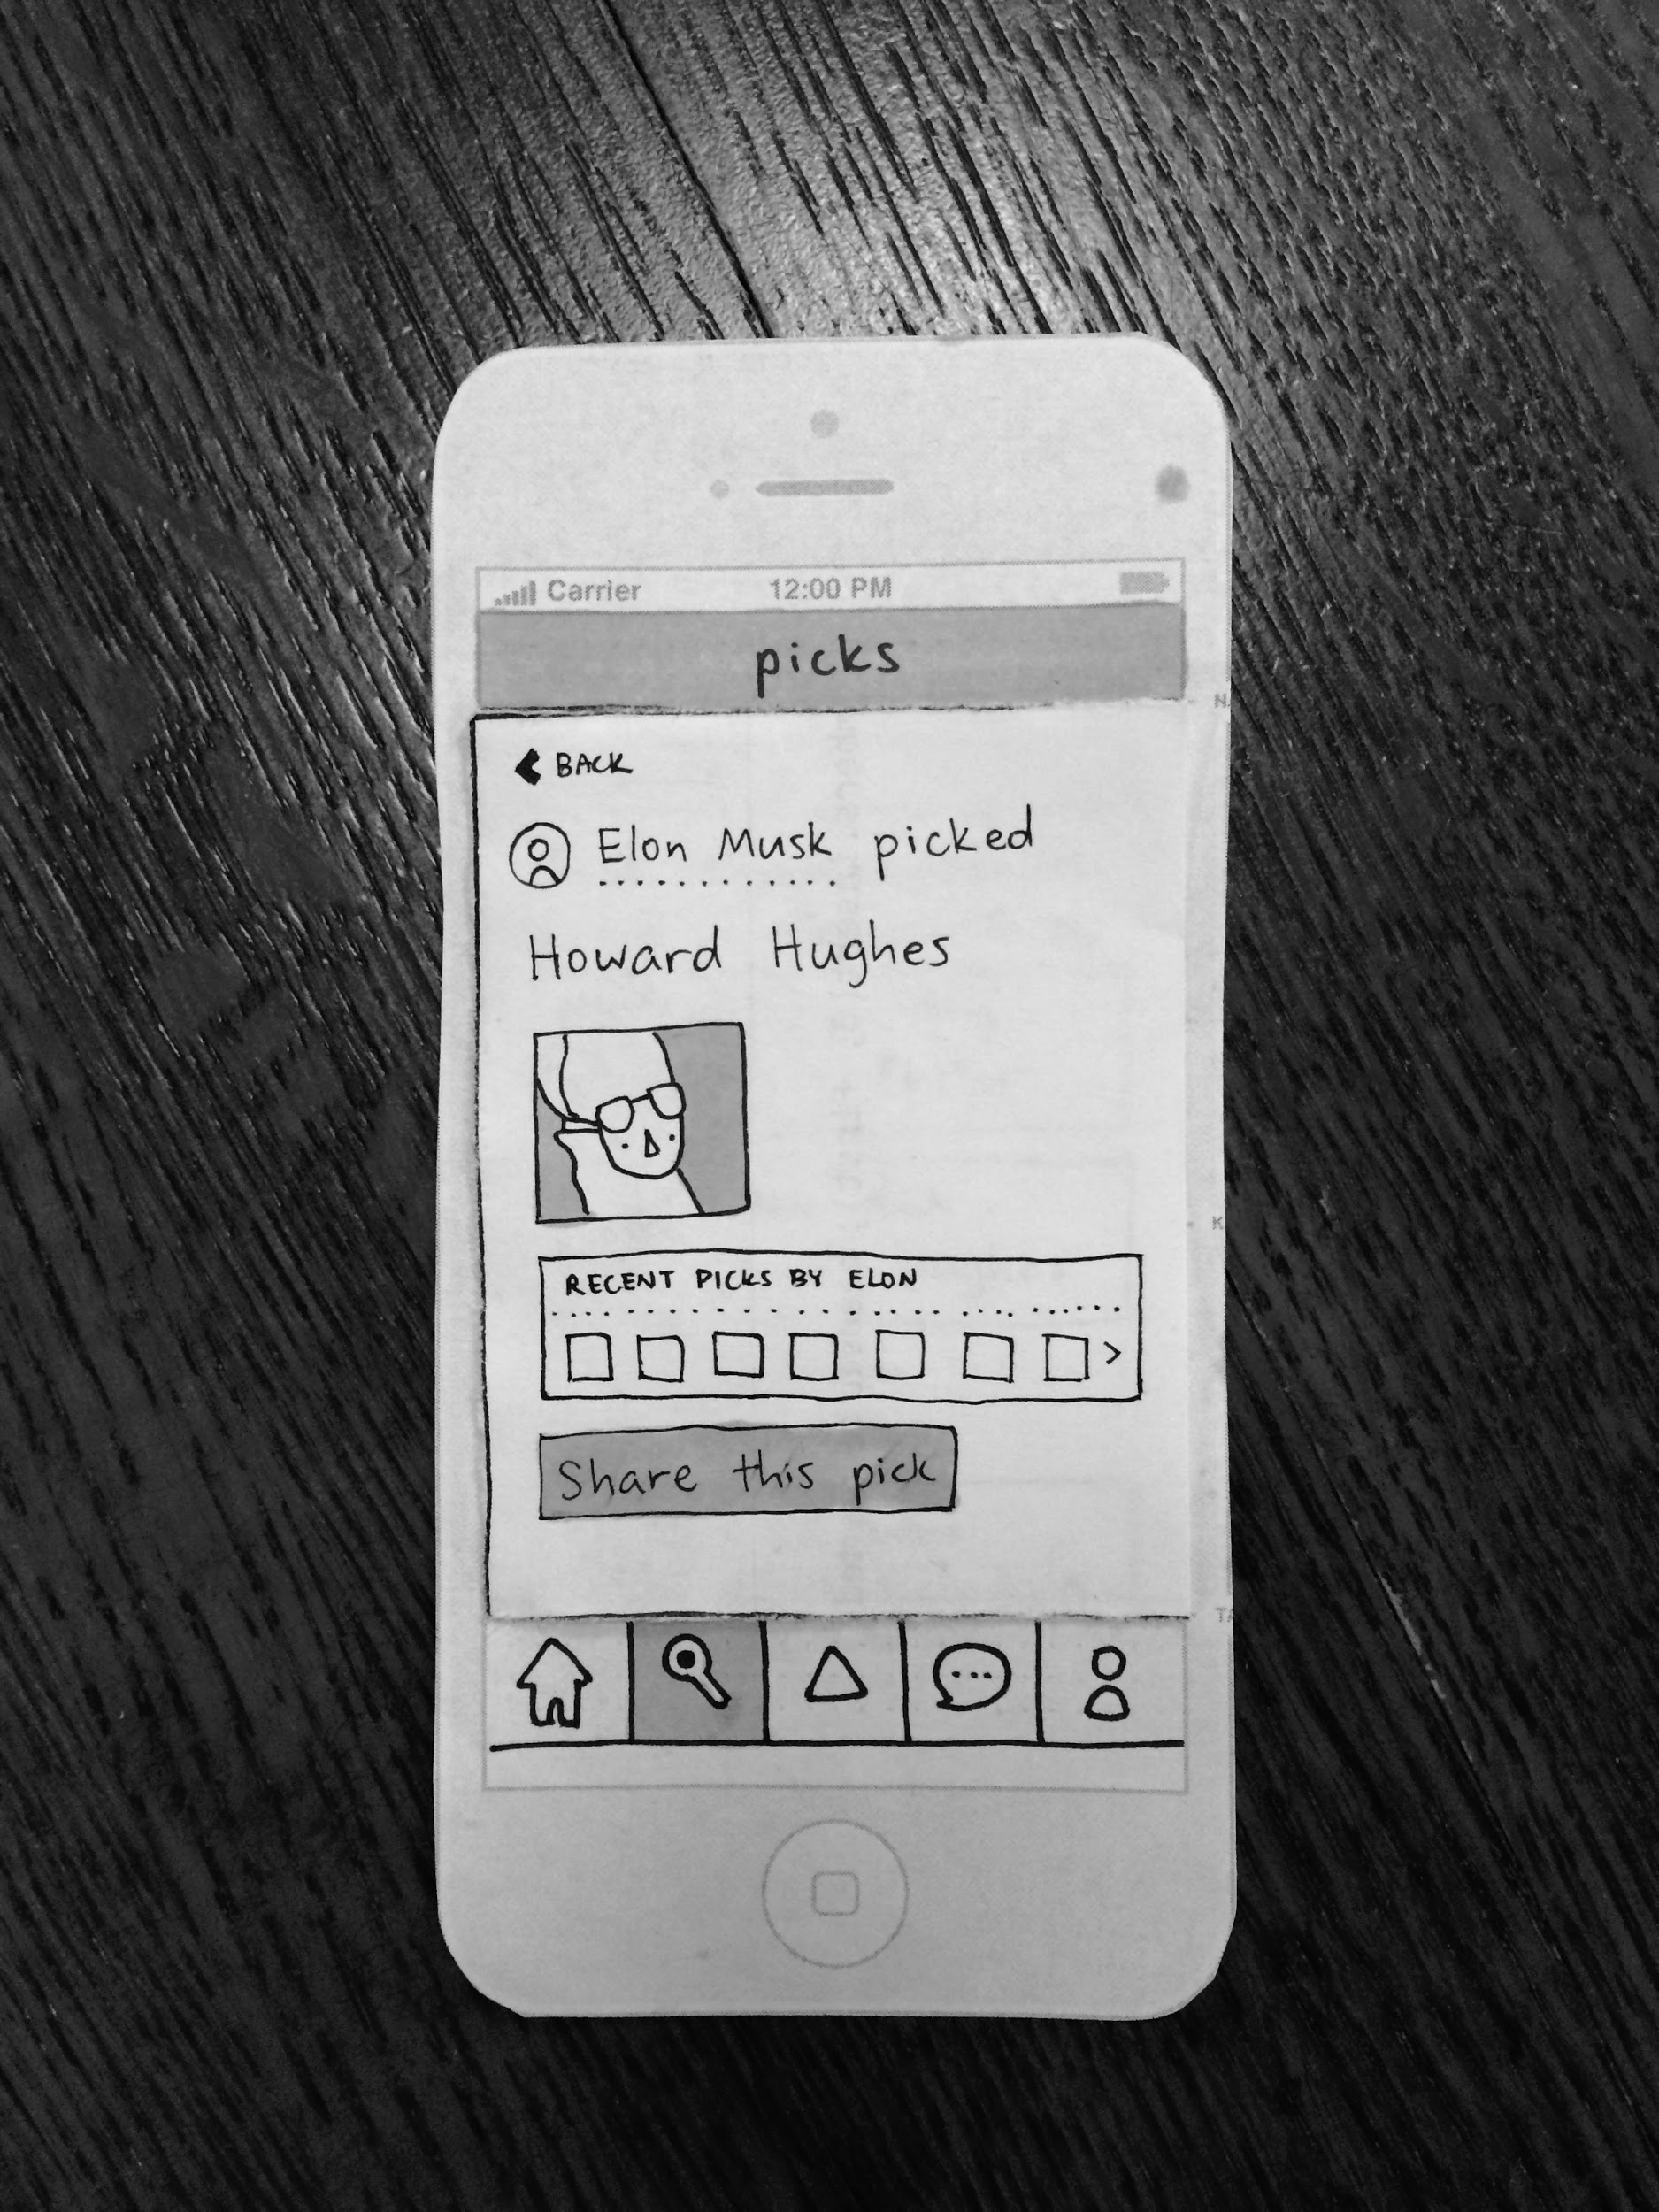 Carrier 12:00 PM
picks
BACK
Elon Musk picked
Howard Hughes
RECENT PICKS BY ELON
Share this pick